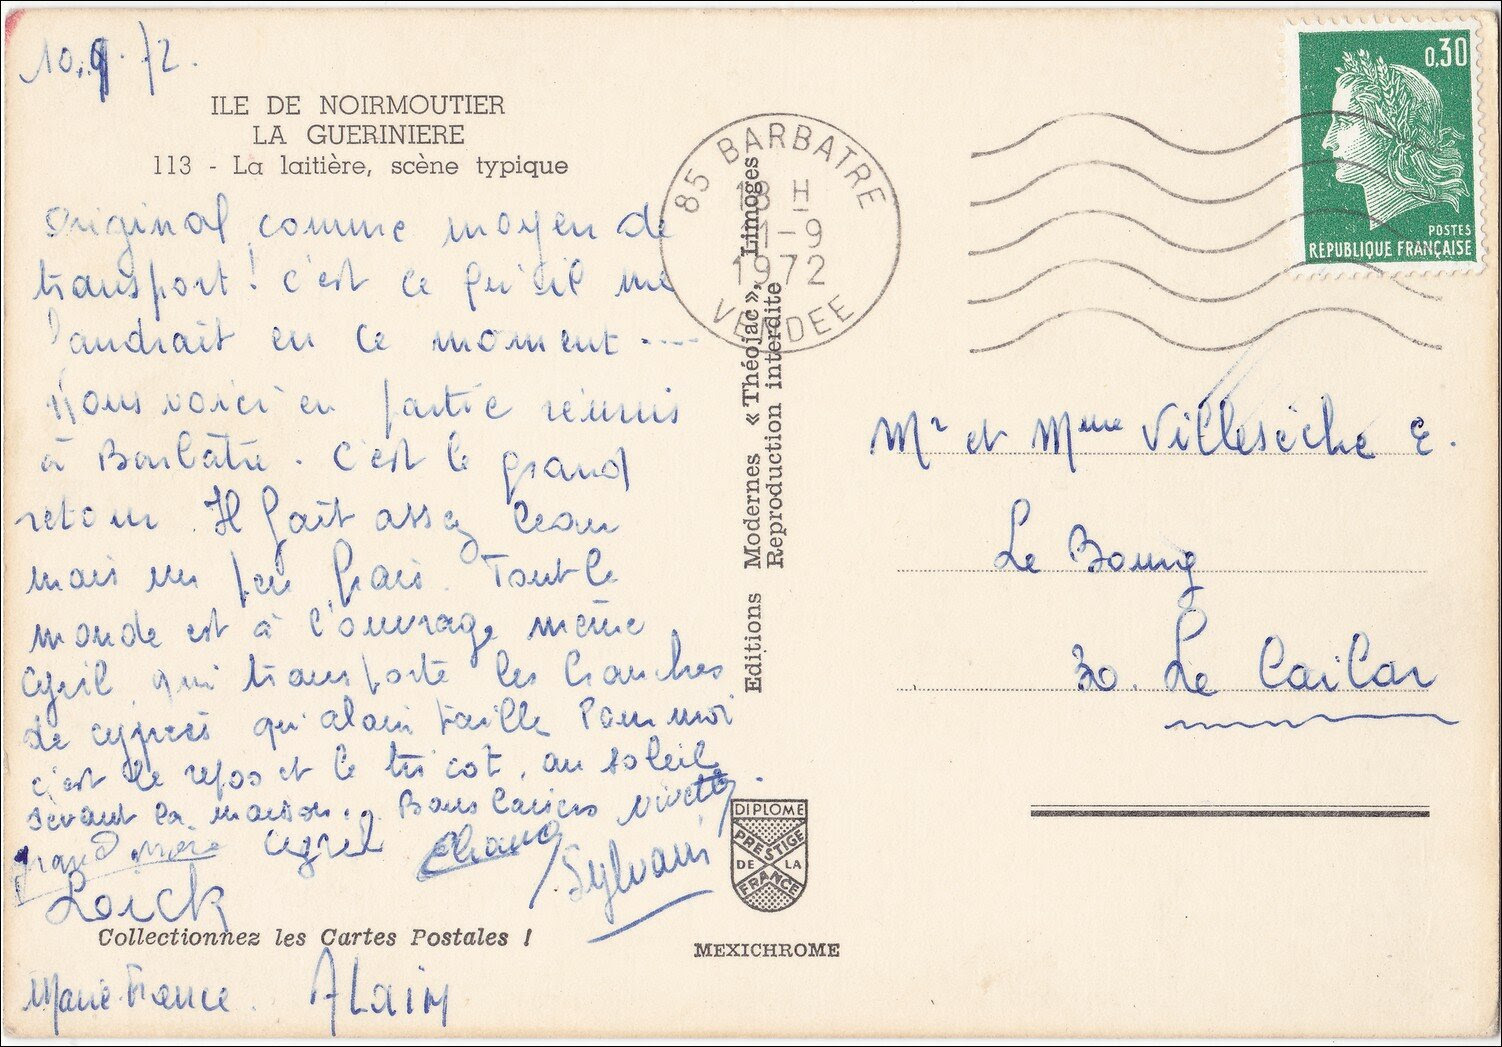 10.9.72.
ILE DE NOIRMOUTIER
LA GUERINIERE
113 - La laitière, scène typique
Original comme moyen de
transport ! C'est ce qu'il me
faudrait en ce moment ----
Nous voici en partie réunis
à Barbâtre. C'est le grand
retour. Il fait assez beau
mais un peu frais. Tout le
monde est à l'ouvrage même
Cyril qui transporte les branches
de cyprès qu'alain taille Pour moi
c'est le repos et le tricot, au soleil
devant la maison. Bons baisers Vivette
grand mère Cyril
Sylvain
Loïck
Collectionnez les Cartes Postales !
Marie-France. ALain
85 BARBATRE
18 H
11-9
1972
VENDEE
Editions Modernes « Théojac », Limoges
Reproduction interdite
DIPLOME
PRESTIGE
DE LA
FRANCE
MEXICHROME
0,30
POSTES
REPUBLIQUE FRANÇAISE
Mr et Mme Villesèche E.
Le Bourg
30. Le Cailar